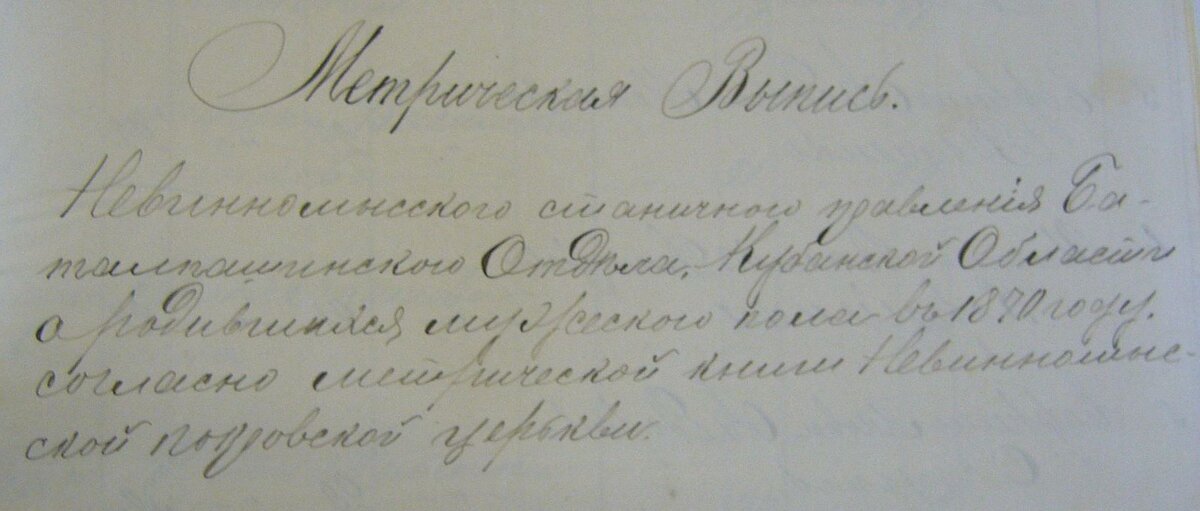 Метрическая Выпись.
Невинномысского станичного правленія Ба-
талпашинского Отдѣла, Кубанской Области
о родившихся мужеского пола въ 1870 году.
согласно метрической книги Невинномыс-
ской покровской церькви.